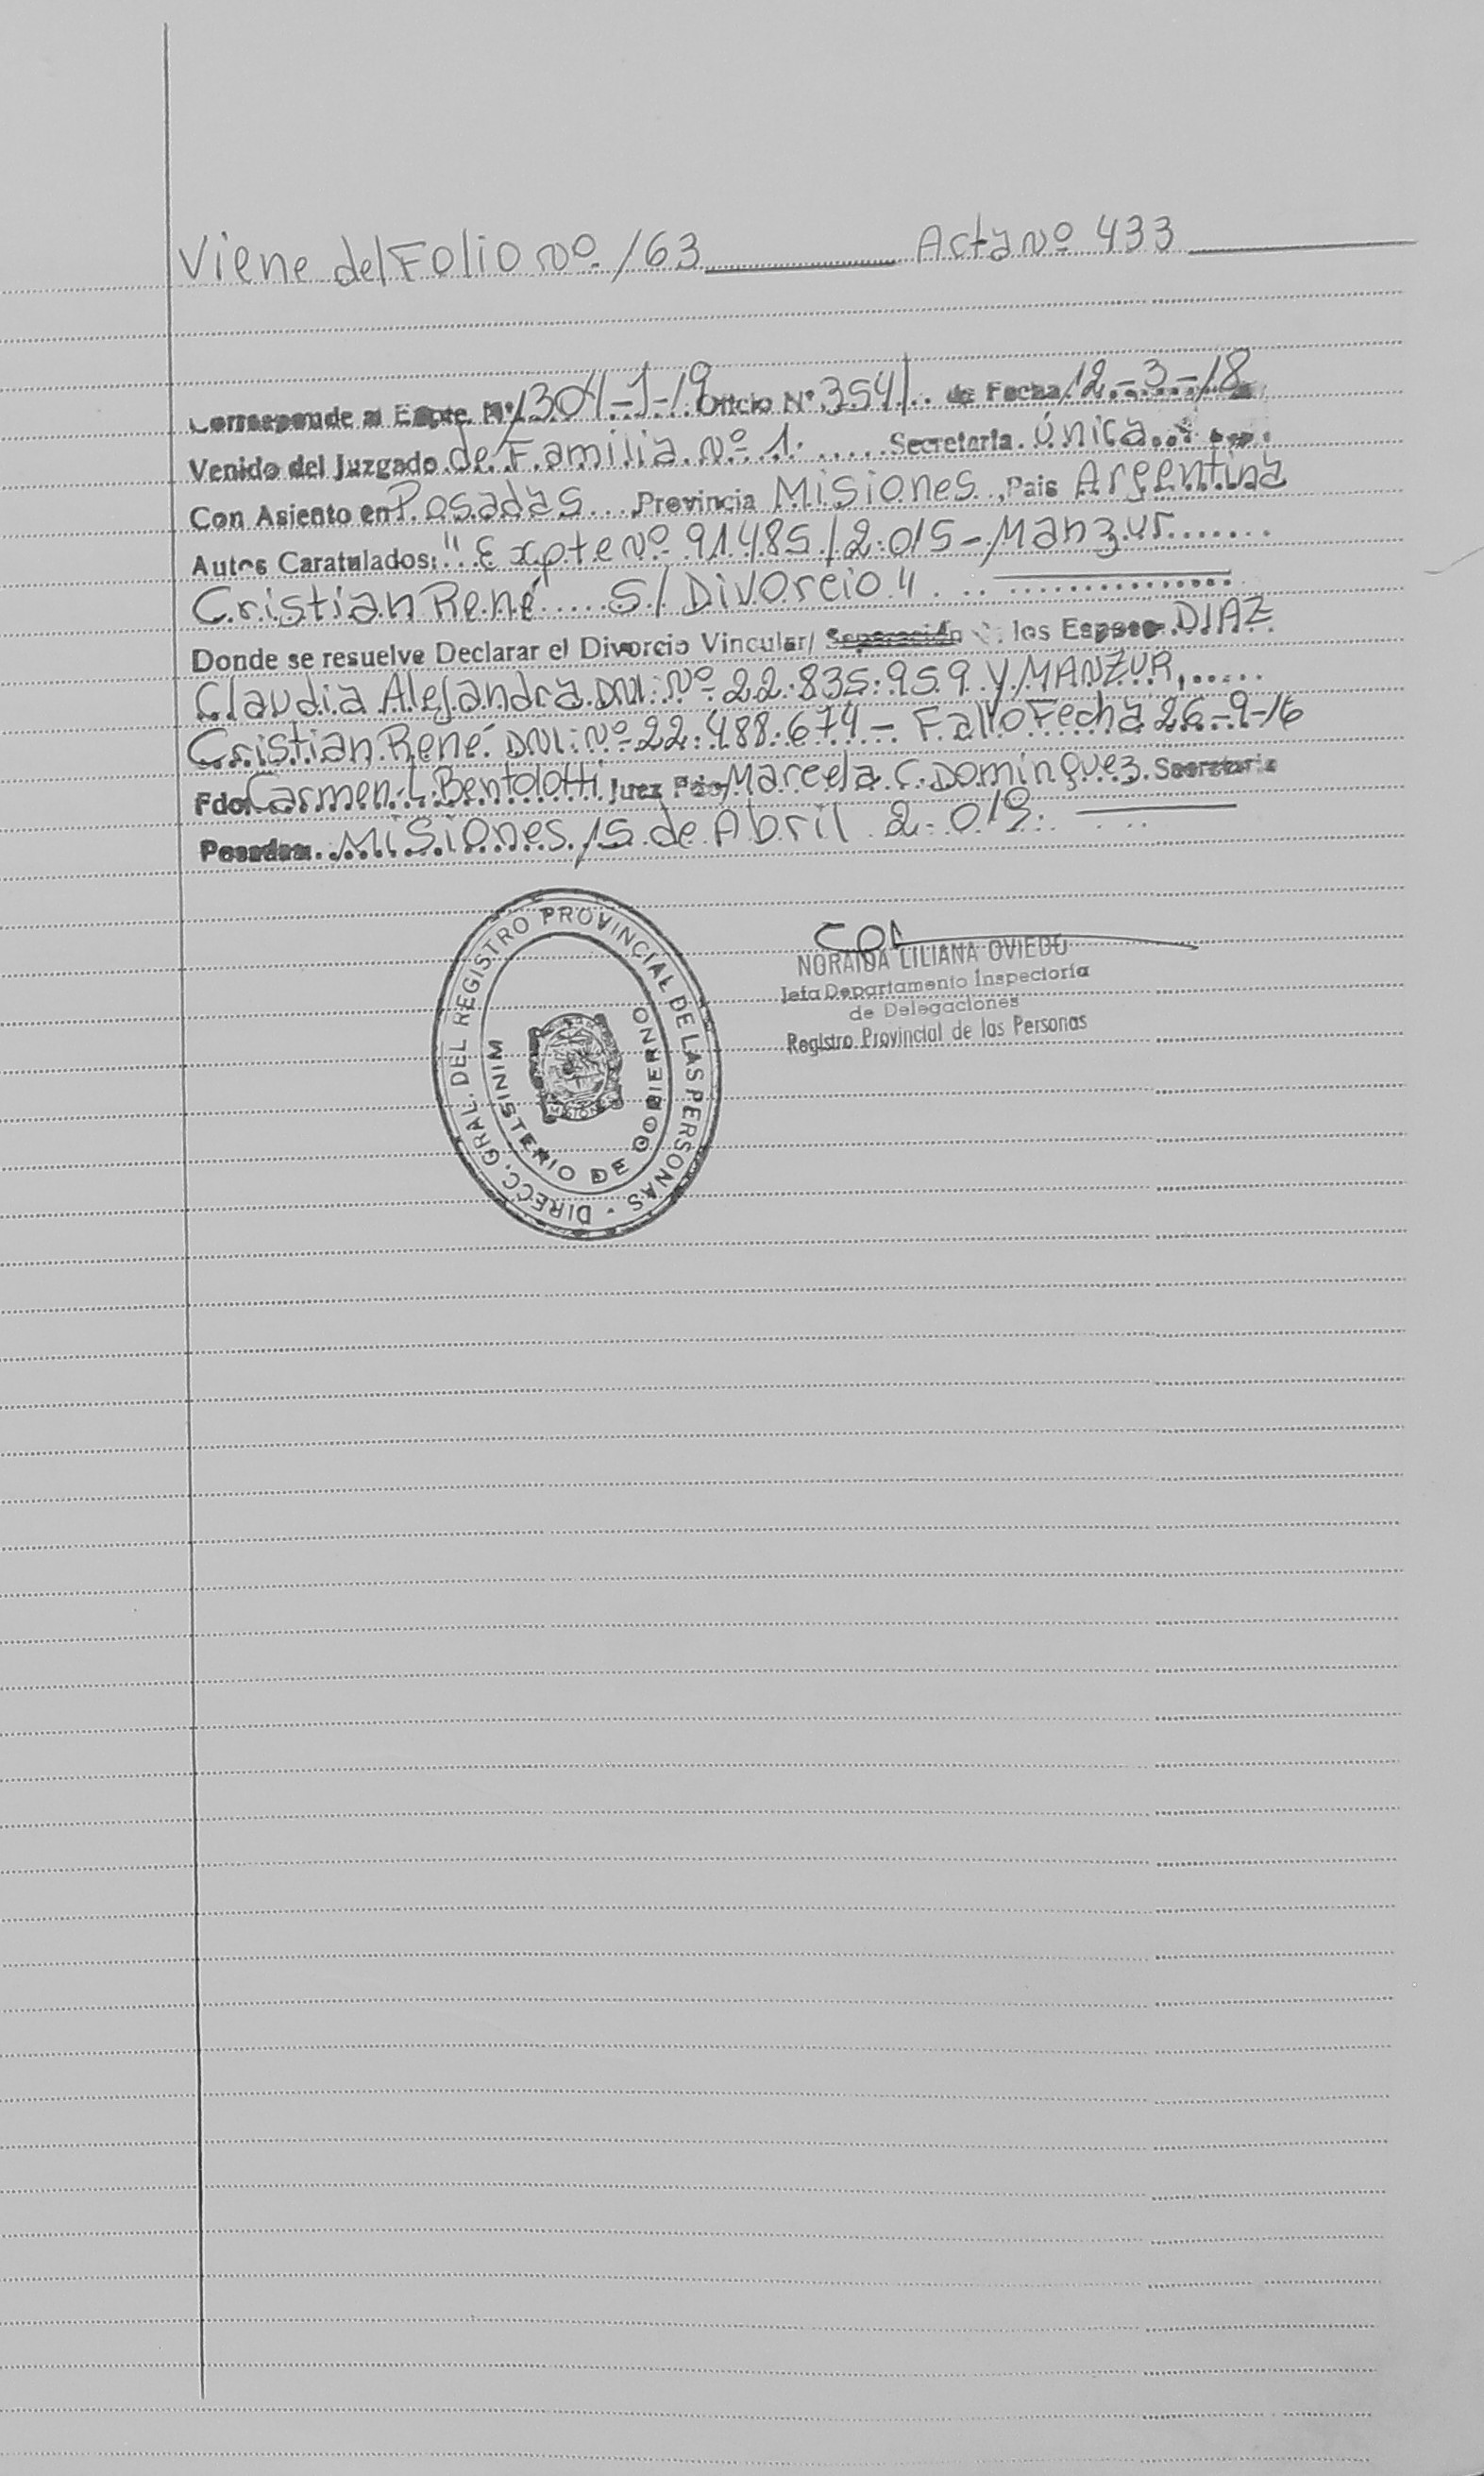 Viene del Folio Nº 163 Acta Nº 433
Corresponde al Expte. Nº 1304-J-19 Oficio Nº 354 de Fecha 12-3-18
Venido del Juzgado de Familia Nº 1. Secretaria Única
Con Asiento en Posadas Provincia Misiones, Pais Argentina
Autos Caratulados: "Expte Nº 91485/2.015- Manzur
Cristian René S/ Divorcio"
Donde se resuelve Declarar el Divorcio Vincular/ Separación los Esposos DIAZ
Claudia Alejandra DNI: Nº 22.835.959 Y MANZUR,
Cristian René DNI: Nº 22.488.674- Fallo Fecha 26-9-16
Fdo. Carmen L. Bentolotti Juez Fdo Marcela C. Dominguez Secretaria
Posadas Misiones, 15 de Abril 2.019.
DIRECC. GRAL. DEL REGISTRO PROVINCIAL DE LAS PERSONAS
MINISTERIO DE GOBIERNO
MISIONES
NORAIDA LILIANA OVIEDO
Jefa Departamento Inspectoría
de Delegaciones
Registro Provincial de las Personas